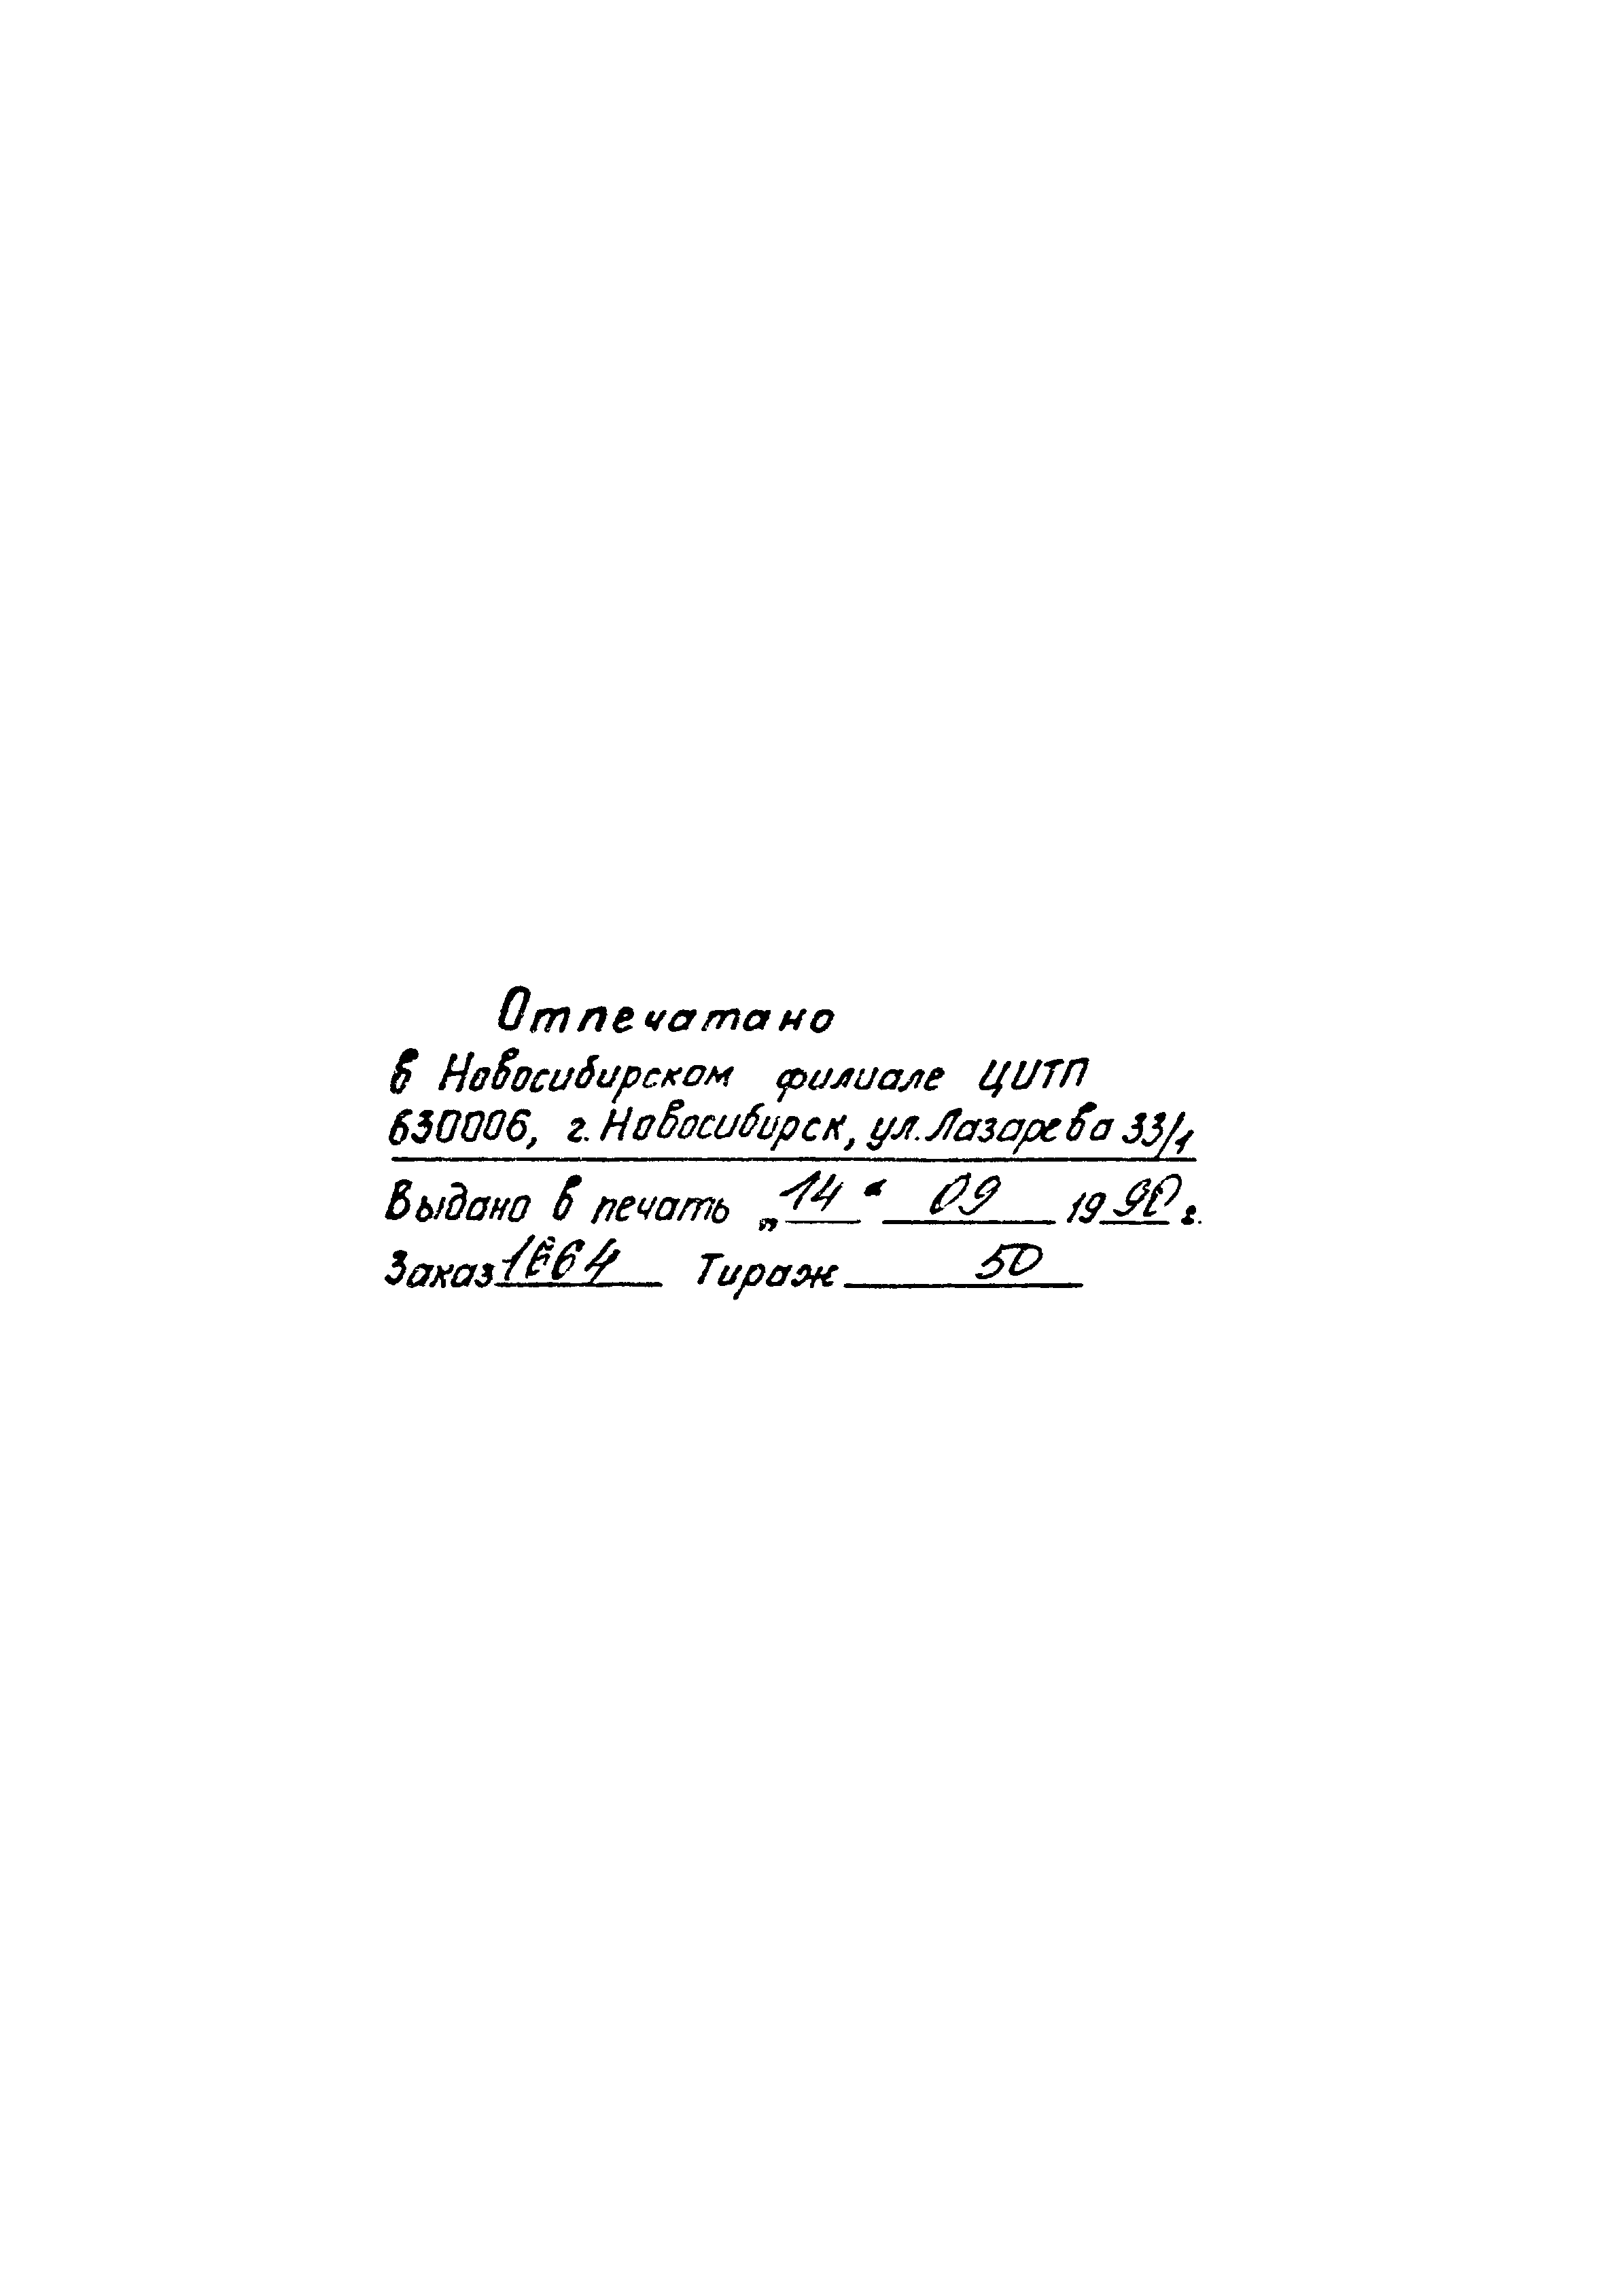 Отпечатано
в Новосибирском филиале ЦИТП
630006, г. Новосибирск, ул. Лазарева 33/1
Выдано в печать „14“ 09 1990 г.
Заказ Тираж 50